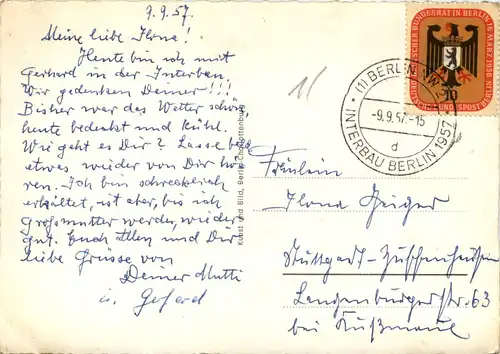 9.9.57.
Meine liebe Ilona!
Heute bin ich mit
Gerhard in der Interbau.
Wir gedenken Deiner!!!
Bisher war das Wetter schön
heute bedeckt und kühl.
Wie geht es Dir? Lasse bald
etwas wieder von Dir hö-
ren. Ich bin schrecklich
erkältet, ist aber, bis ich
Großmutter werde, wieder
gut. Euch Allen und Dir
liebe Grüsse von
Deiner Mutti
u. Gerhard
Kunst und Bild, Berlin-Charlottenburg
DEUTSCHER BUNDESRAT IN BERLIN 16. MÄRZ 1956
DEUTSCHE BUNDESPOST BERLIN
10
(1) BERLIN
-9.9.57.-15
d
INTERBAU BERLIN 1957
Fräulein
Ilona Geiger
Stuttgart-Zuffenhausen
Langenburgerstr. 63
bei Kußmaul